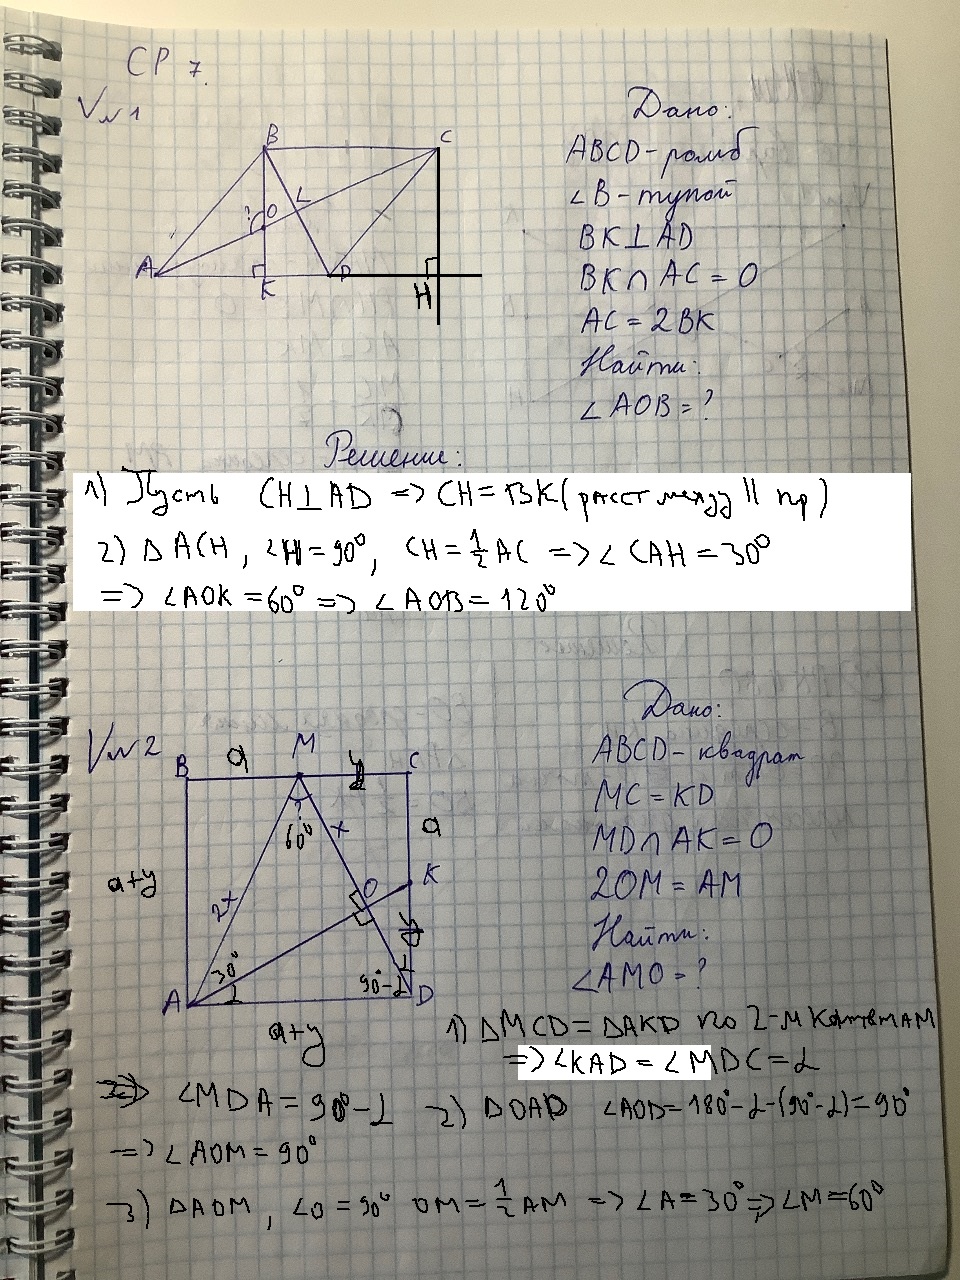 СР 7.
V №1
B
C
?
O
L
A
K
D
H
Дано:
ABCD - ромб
∠B - тупой
BK⊥AD
BK∩AC = O
AC = 2BK
Найти:
∠AOB = ?
Решение:
1) Пусть CH⊥AD => CH = BK (расст между || пр)
2) △ACH, ∠H = 90°, CH = 1/2 AC => ∠CAH = 30°
=> ∠AOK = 60° => ∠AOB = 120°
V №2
B
a
M
y
C
?
60°
x
a
a+y
2x
O
K
y
30°
A
α
90°-α
α
D
a+y
Дано:
ABCD - квадрат
MC = KD
MD∩AK = O
2OM = AM
Найти:
∠AMO = ?
1) △MCD = △AKD по 2-м катетам
=> ∠KAD = ∠MDC = α
=> ∠MDA = 90° - α 2) △OAD ∠AOD = 180° - α - (90° - α) = 90°
=> ∠AOM = 90°
3) △AOM, ∠O = 90° OM = 1/2 AM => ∠A = 30° => ∠M = 60°